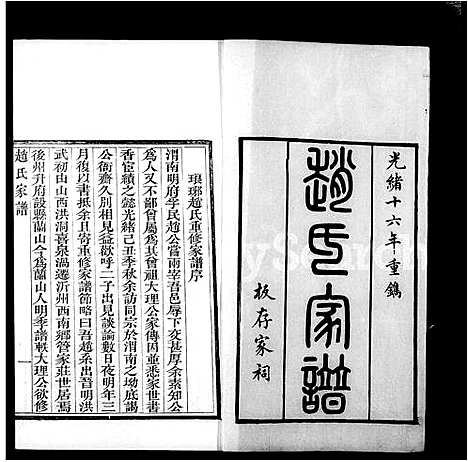 光緒十六年重鐫
趙氏家譜
板存家祠
琅琊趙氏重修家譜序
渭南明府字民趙公嘗兩宰吾邑辱下交甚厚余素知公
為人又不鄙曾屬為其曾祖大理公家傳因並悉家世書
香宦績之懿光緒己丑季秋余訪同宗於渭南之坳底謁
公衙齋久別相見益歡呼二子出見談論數日夜明年三
月復以書抵余且寄重修家譜節略曰吾趙系出晉明洪
武初由山西洪洞喜泉渦遷沂州西南鄉管家莊世居焉
後州升府設縣蘭山今為蘭山人明季譜軼大理公欲修
趙氏家譜
一